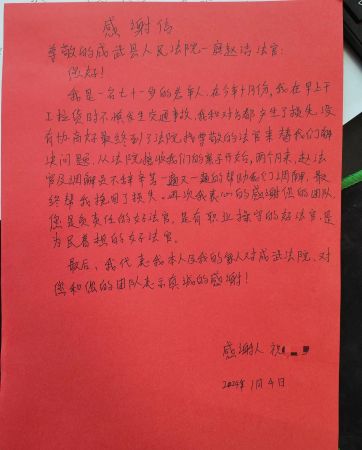 感谢信
尊敬的成武县人民法院一庭赵洁法官:
您好!
我是一名七十一岁的老年人,在今年十月份,我在早上干
工捡货时不慎发生交通事故,我和对方都产生了损失,没
有协商好最终到了法院,找尊敬的法官来替我们解
决问题,从法院接收我们的案子开始,两个月来,赵法
官及调解员不辞辛苦一趟又一趟的帮助我们调解,最
终帮我挽回了损失。再次我衷心的感谢您的团队,
您是负责任的好法官,是有职业操守的好法官,是
为民着想的好法官。
最后,我代表我本人及我的家人对成武法院、对
您和您的团队表示真诚的感谢!
感谢人 祝
2024年1月4日